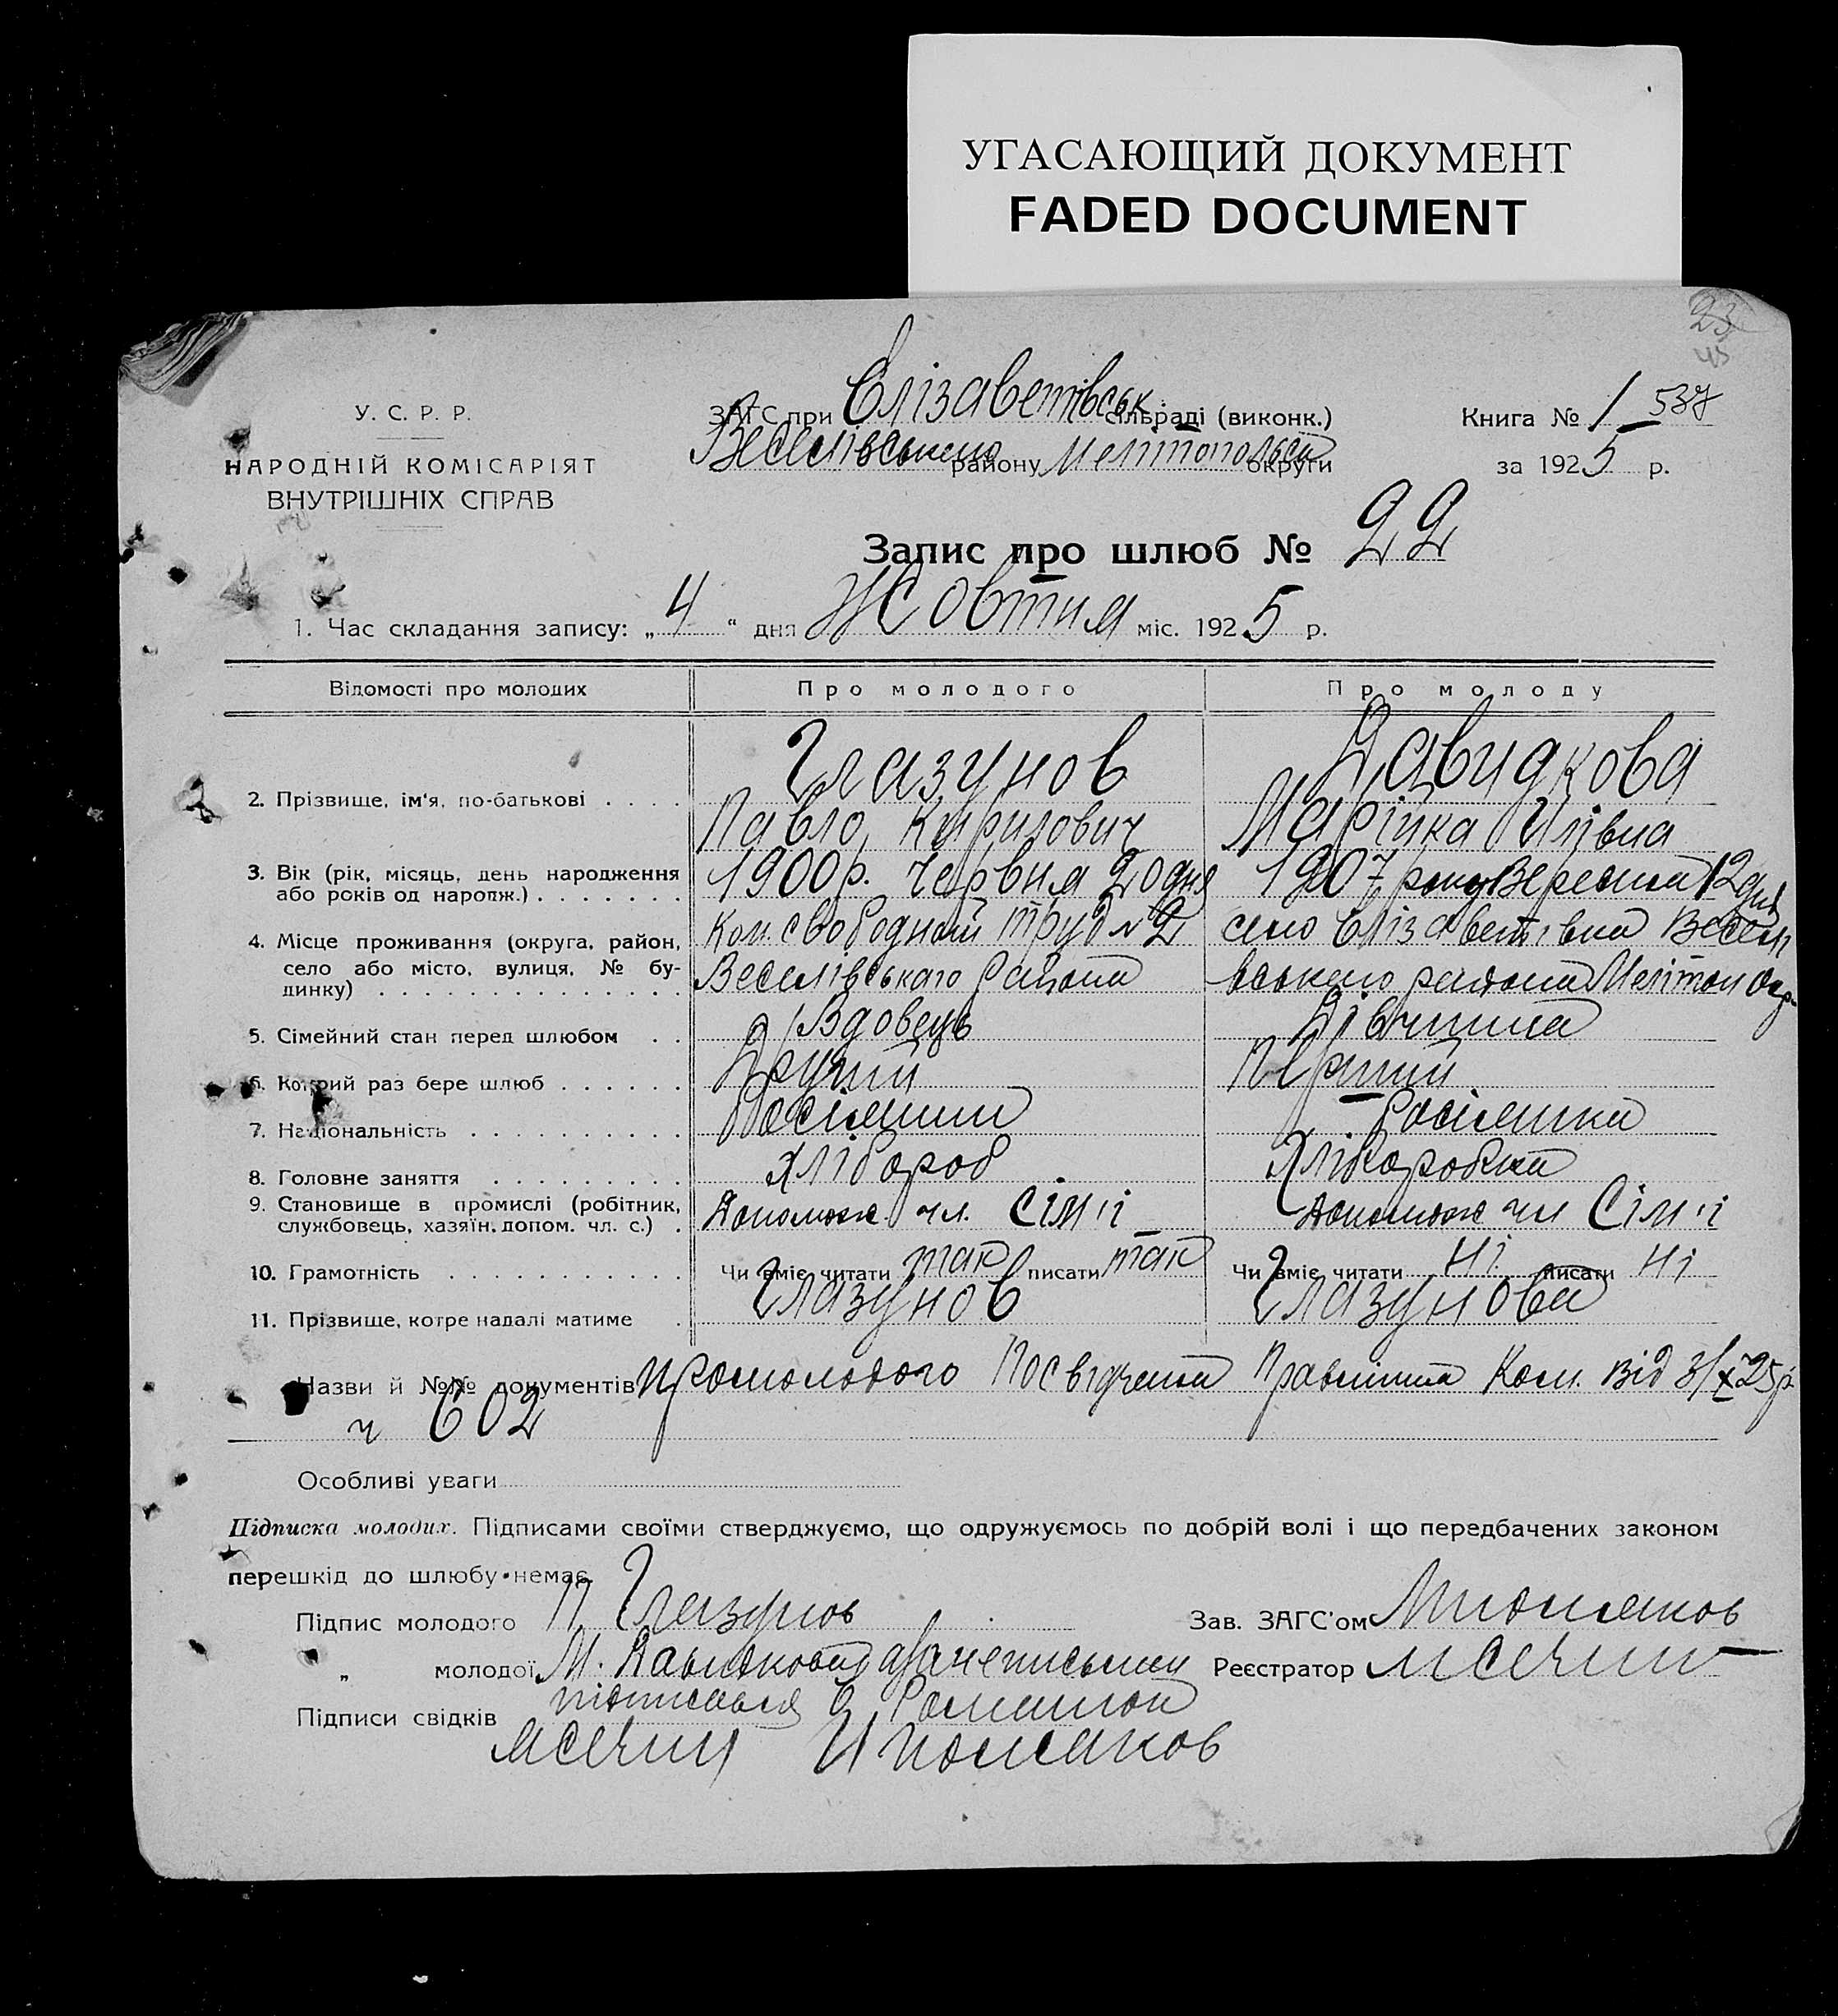 УГАСАЮЩИЙ ДОКУМЕНТ
FADED DOCUMENT
23
45
У. С. Р. Р.
НАРОДНІЙ КОМІСАРІЯТ
ВНУТРІШНІХ СПРАВ
ЗАГС при Єлізаветівськ. сільраді (виконк.)
Веселівського району Мелітопольськ округи
Книга № 1 537
за 1925 р.
Запис про шлюб № 22
1. Час складання запису: „4“ дня Жовтня міс. 1925 р.
Відомості про молодих Про молодого Про молоду
2. Прізвище, ім'я, по-батькові Глазунов Давидкова
Павло Кирилович Марійка Илівна
3. Вік (рік, місяць, день народження або років од народж.) 1900 р. Червня 20 дня 1907 року Вересня 12 дня
4. Місце проживання (округа, район, село або місто, вулиця, № будинку) Ком. Свободний труд № 2 село Єлізаветівка Веселі
Веселівськаго Района вського района Мелітоп Окр.
5. Сімейний стан перед шлюбом Вдовець Дівчина
6. Котрий раз бере шлюб Другий Перший
7. Національність Росіянин Росіянка
8. Головне заняття Хлібороб Хліборобка
9. Становище в промислі (робітник, службовець, хазяїн, допом. чл. с.) Допомож. чл. Сім'ї Допомож чл Сім'ї
10. Грамотність Чи вміє читати так писати так Чи вміє читати Ні писати Ні
11. Прізвище, котре надалі матиме Глазунов Глазунова
Назви й №№ документів Промолодого Посвідчення Правління Ком. Від 3/X 25 р.
ч 602
Особливі уваги
Підписка молодих. Підписами своїми стверджуємо, що одружуємось по добрій волі і що передбачених законом
перешкід до шлюбу немає.
Підпис молодого П Глазунов Зав. ЗАГС'ом
„ молодої М. Давидкова Реєстратор
Підписи свідків